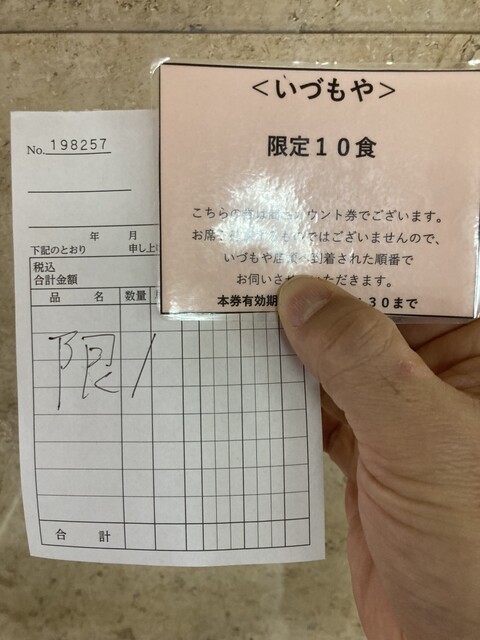 <いづもや>
限定10食
こちらの券は限定カウント券でございます。
お席を ものではございませんので、
いづもや店頭へ到着された順番で
お伺いさせていただきます。
本券有効期 30まで
No. 198257
年 月
下記のとおり 申し上
税込
合計金額
品 名 数量
限 1
合 計